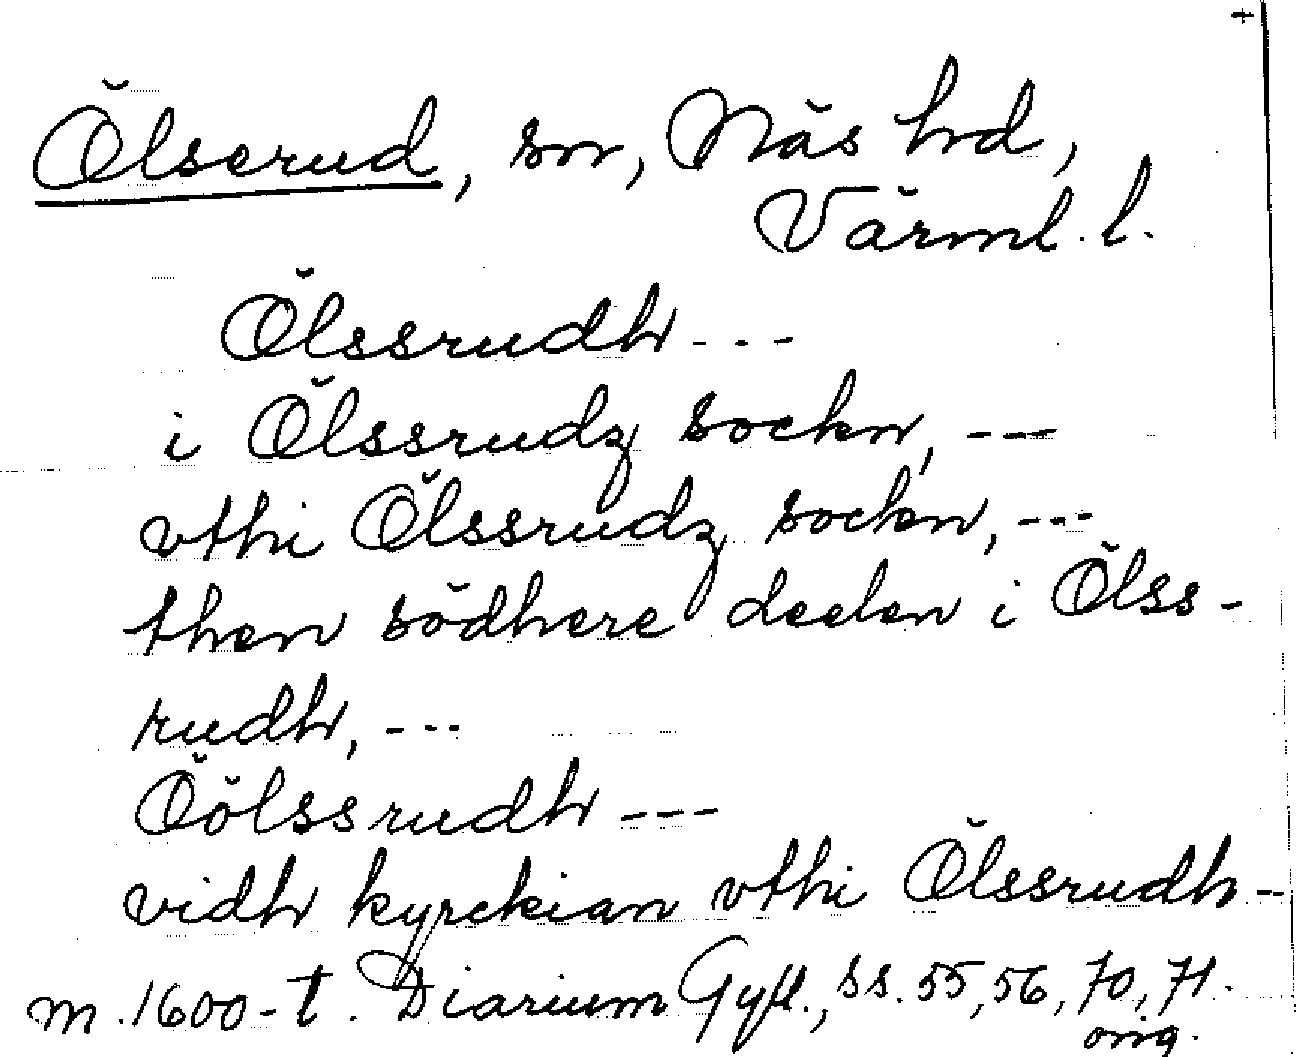 Ölserud, sn, Näs hd,
Värml. l.
Ölssrudh ---
i Ölssrudz sockn, ---
vthi Ölssrudz sockn, ---
then södhere deelen i Ölss-
rudh, ---
Öölssrudh ---
vidh kyrckian vthi Ölssrudh -
m. 1600-t. Diarium Gyll., ss. 55, 56, 70, 71.
orig.